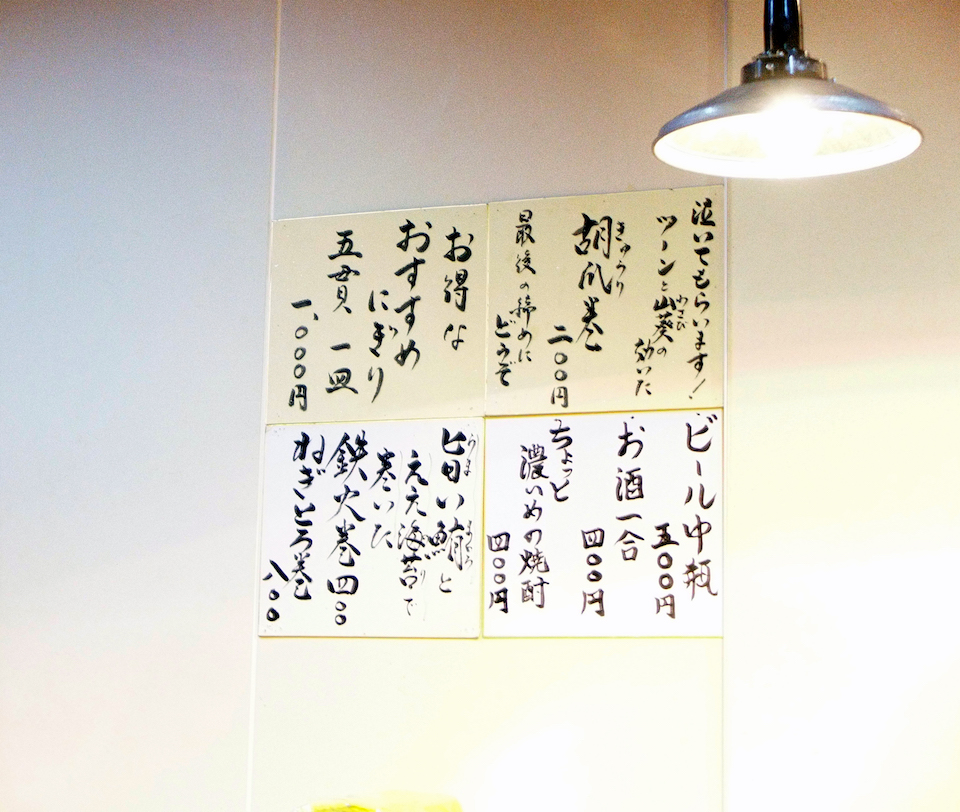 泣いてもらいます!
ツーンと山葵の
わさび
効いた
きゅうり
胡瓜巻
二〇〇円
最後の締めに
どうぞ
お得な
おすすめ
にぎり
五貫 一皿
一、〇〇〇円
ビール中瓶
五〇〇円
お酒一合
四〇〇円
ちょっと
濃いめの焼酎
四〇〇円
旨い鮪と
うま
まぐろ
ええ海苔で
のり
巻いた
鉄火巻四〇〇
ねぎとろ巻
八〇〇